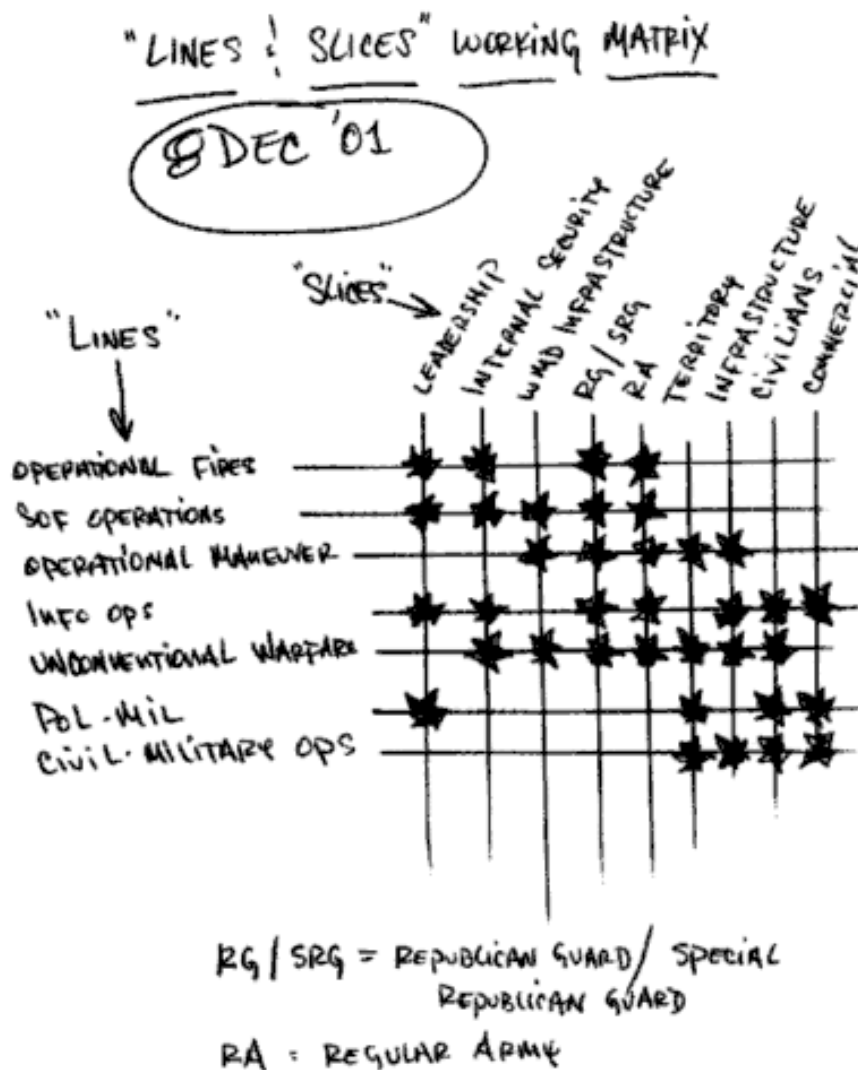 "LINES & SLICES" WORKING MATRIX
8 DEC '01
"SLICES"
"LINES"
LEADERSHIP
INTERNAL SECURITY
WMD INFRASTRUCTURE
RG/SRG
RA
TERRITORY
INFRASTRUCTURE
CIVILIANS
COMMERCIAL
OPERATIONAL FIRES
SOF OPERATIONS
OPERATIONAL MANEUVER
INFO OPS
UNCONVENTIONAL WARFARE
POL-MIL
CIVIL-MILITARY OPS
RG/SRG = REPUBLICAN GUARD/ SPECIAL
REPUBLICAN GUARD
RA = REGULAR ARMY